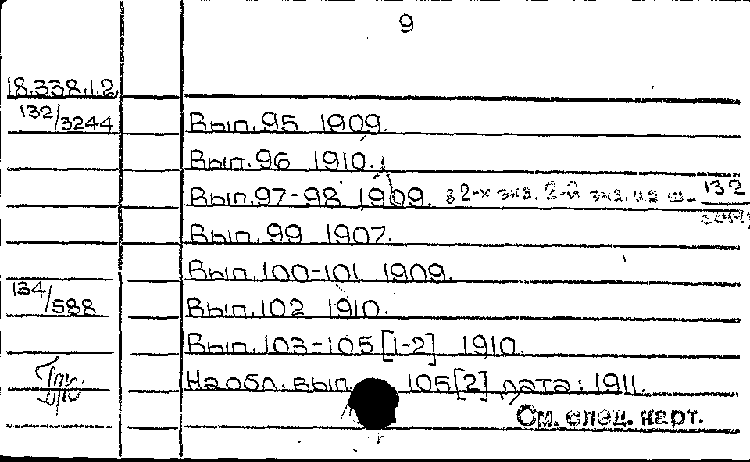 9
18.338.1.2
132/3244 Вып.95 1909.
Вып.96 1910.
Вып.97-98 1909. в 2-х экз. 2-й экз. на ш- 132
Вып.99 1907.
Вып.100-101 1909.
134/588 Вып.102 1910.
Вып.103-105[1-2] 1910.
На обл. вып. 105[2] дата: 1911.
См. след. карт.